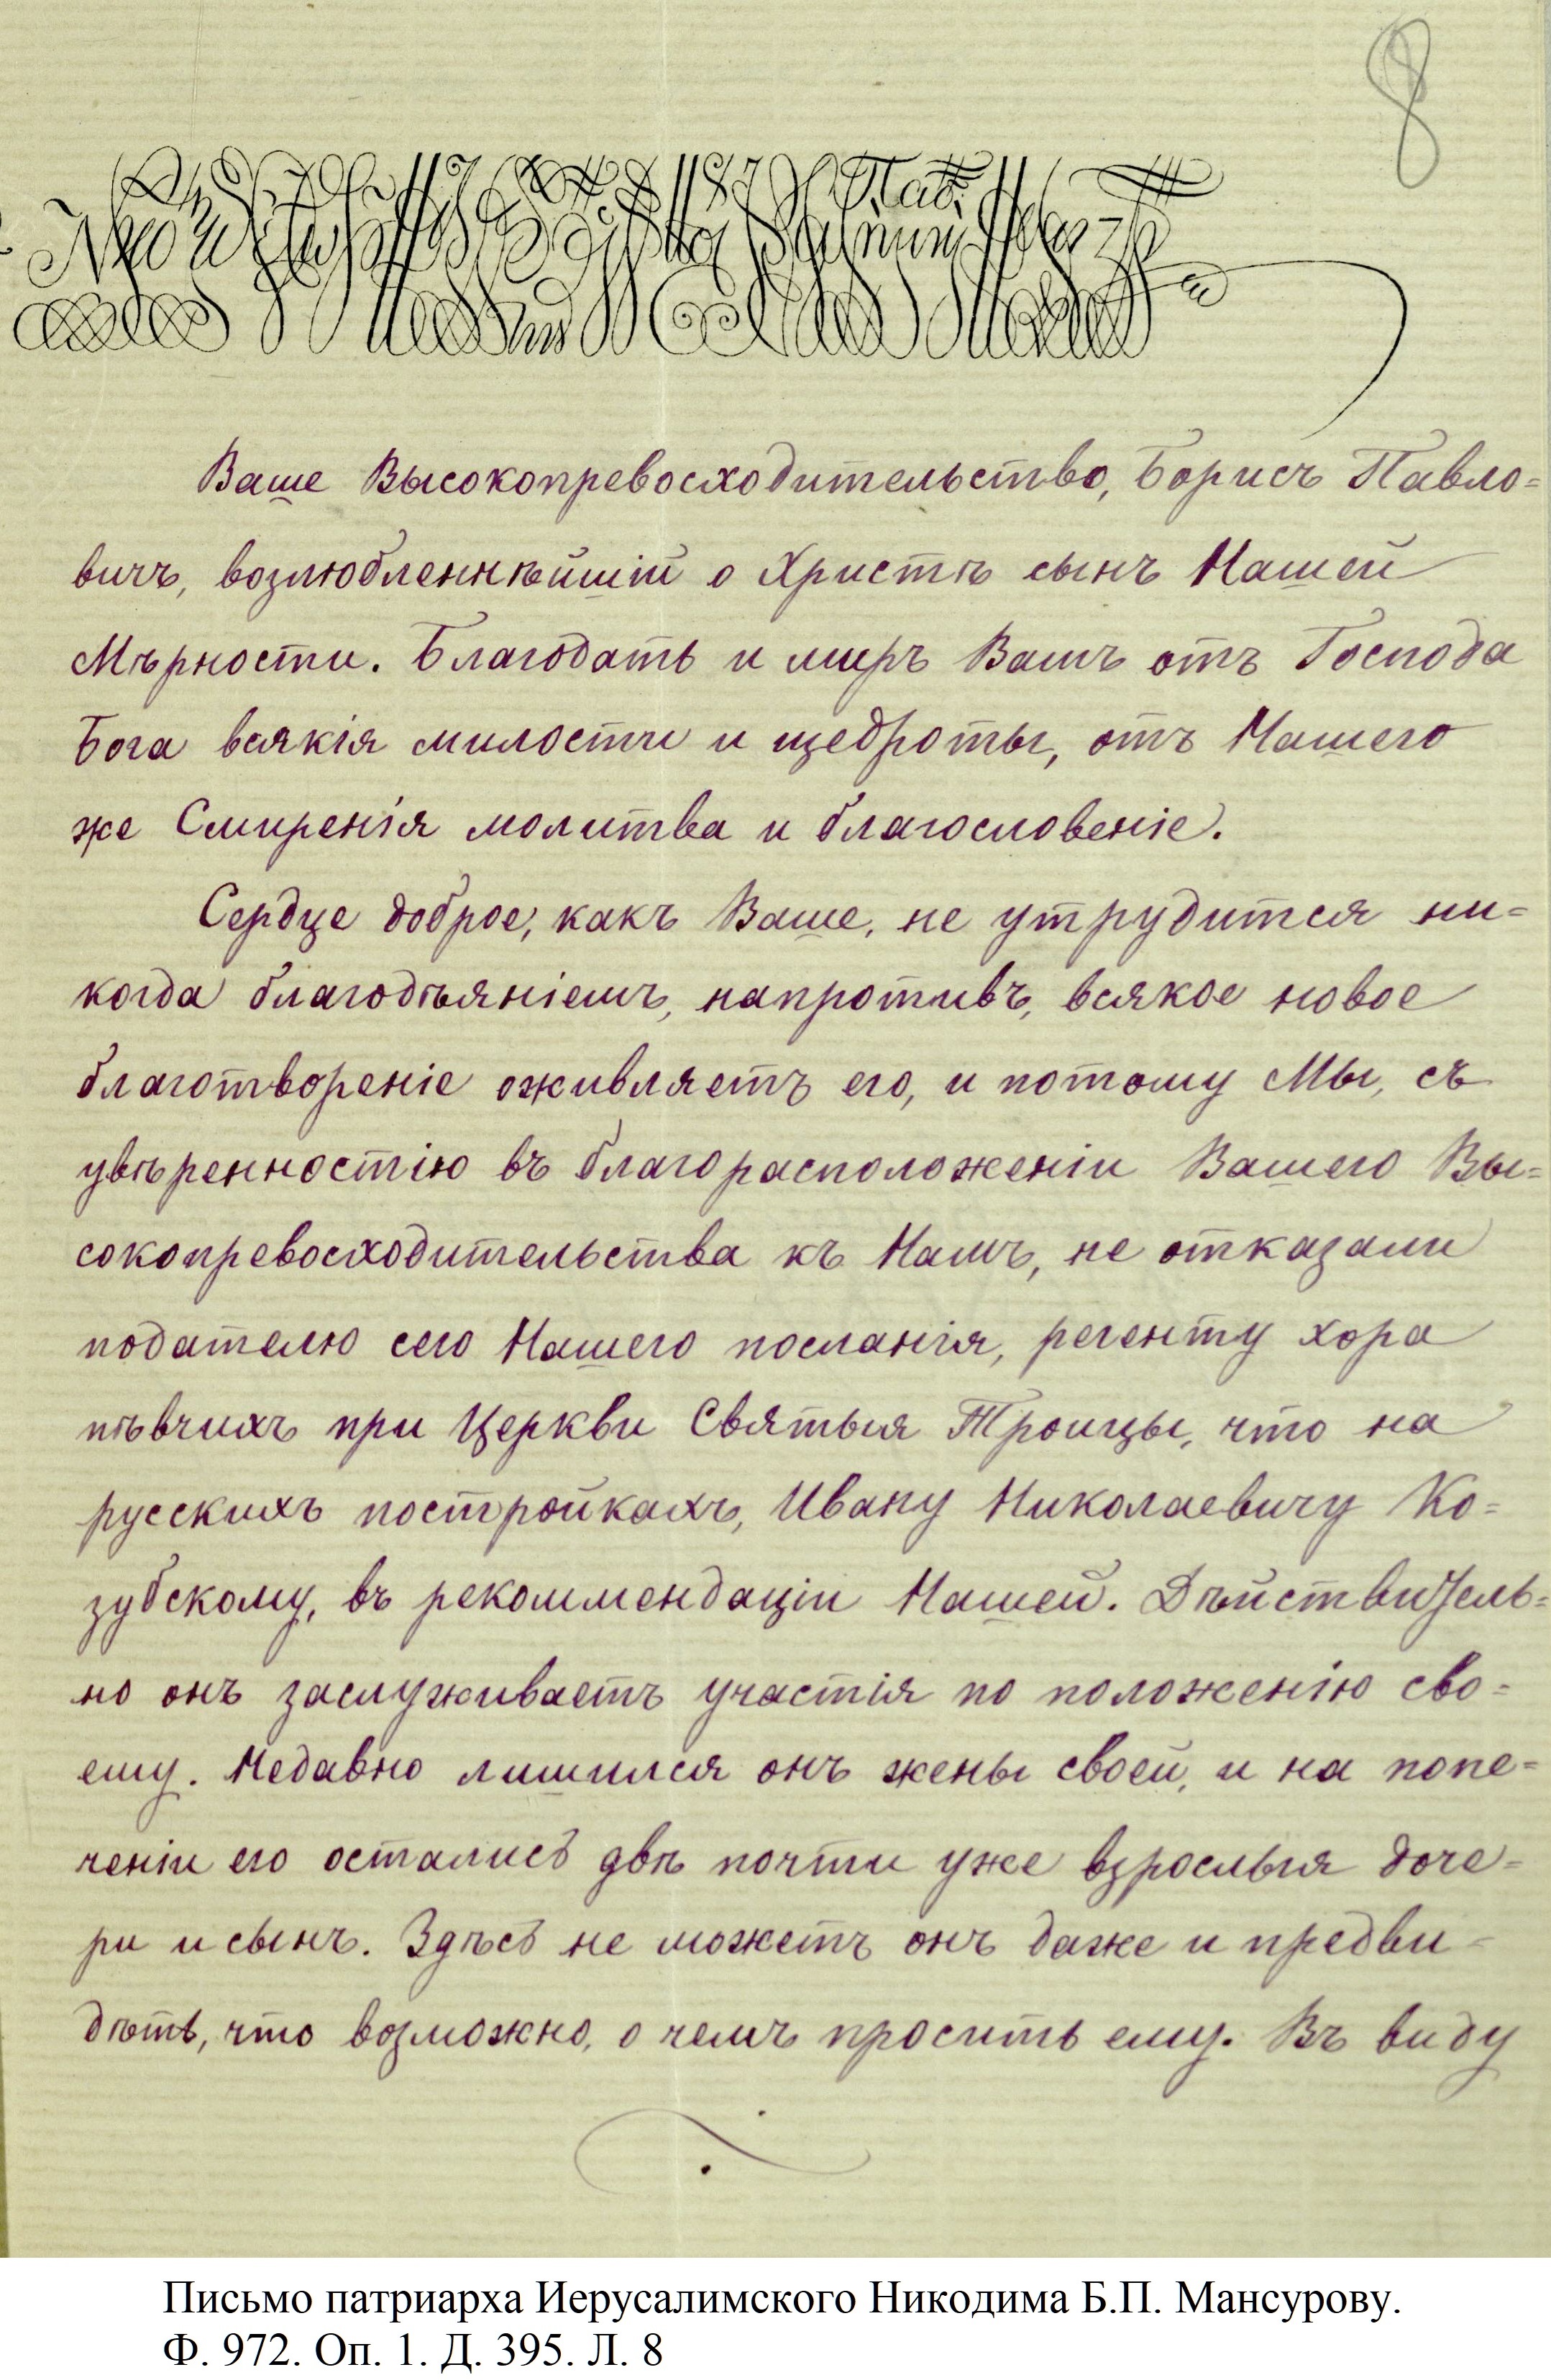 8
Ваше Высокопревосходительство, Борисъ Павло=
вичъ, возлюбленнѣйшій о Христѣ сынъ Нашей
Мѣрности. Благодать и миръ Вамъ отъ Господа
Бога всякія милости и щедроты, отъ Нашего
же Смиренія молитва и благословеніе.
Сердце доброе, какъ Ваше, не утрудится ни=
когда благодѣяніемъ, напротивъ, всякое новое
благотвореніе оживляетъ его, и потому Мы, съ
увѣренностію въ благорасположеніи Вашего Вы=
сокопревосходительства къ Намъ, не отказали
подателю сего Нашего посланія, регенту хора
пѣвчихъ при Церкви Святыя Троицы, что на
русскихъ постройкахъ, Ивану Николаевичу Ко=
зубскому, въ рекоммендаціи Нашей. Дѣйствитель=
но онъ заслуживаетъ участія по положенію сво=
ему. Недавно лишился онъ жены своей, и на попе=
ченіи его остались двѣ почти уже взрослыя доче=
ри и сынъ. Здѣсь не можетъ онъ даже и предви=
дѣть, что возможно, о чемъ просить ему. Въ виду
Письмо патриарха Иерусалимского Никодима Б.П. Мансурову.
Ф. 972. Оп. 1. Д. 395. Л. 8